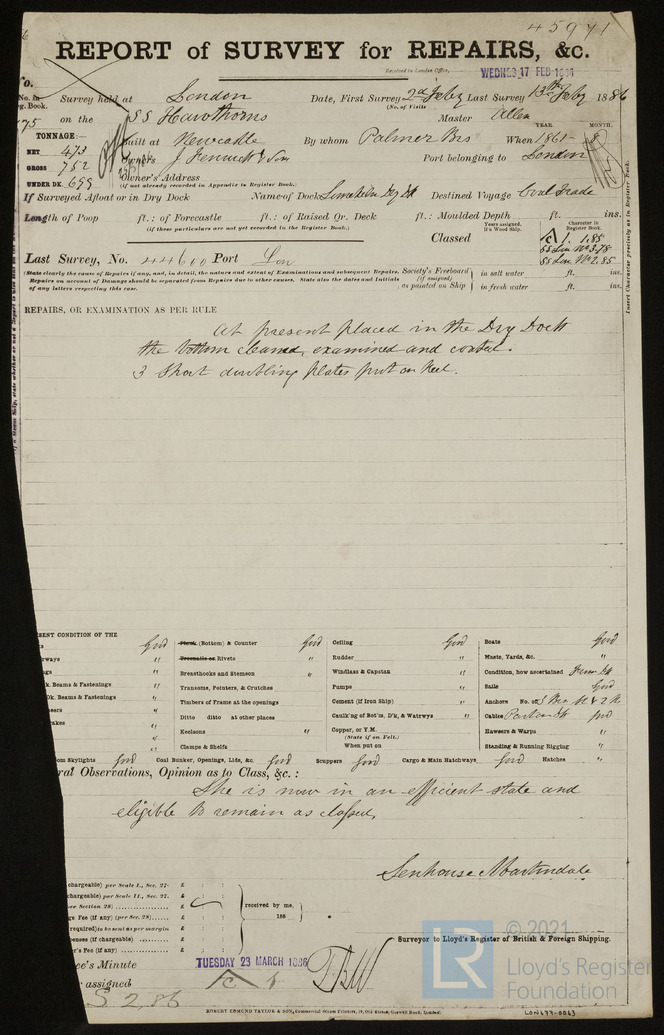 45941
REPORT of SURVEY for REPAIRS, &c.
Received in London Office, WEDNES 17 FEB 1886
Survey held at London Date, First Survey 2d Feby Last Survey 13th Feby 1886
(No. of Visits
on the SS Hawthorns Master Allen
YEAR. MONTH.
TONNAGE:—
NET 473
GROSS 752
UNDER DK. 699
Built at Newcastle By whom Palmer Bros When 1861 - 8
Owners J Fenwick & Son Port belonging to London
Owner's Address
(if not already recorded in Appendix to Register Book.)
If Surveyed Afloat or in Dry Dock Name of Dock Limekiln Dry Dk Destined Voyage Coal Trade
Length of Poop ft.: of Forecastle ft.: of Raised Qr. Deck ft.: Moulded Depth ft. ins.
(if these particulars are not yet recorded in the Register Book.)
Years assigned, if a Wood Ship. Character in Register Book.
Classed A 1. 1.85
SS Lon No 3.78
SS Lon No 2.85
Last Survey, No. 44600 Port Lon
(State clearly the cause of Repairs if any, and, in detail, the nature and extent of Examinations and subsequent Repairs.
Repairs on account of Damage should be separated from Repairs due to other causes. State also the dates and Initials
of any letters respecting this case.
Society's Freeboard (if assigned) as painted on Ship
in salt water ft. ins.
in fresh water ft. ins.
Insert Character precisely as in Register Book.
REPAIRS, OR EXAMINATION AS PER RULE
At present placed in the Dry Dock
the bottom cleaned, examined and coated.
3 Short doubling plates put on keel.
SENT CONDITION OF THE
Good Plank (Bottom) & Counter Good Ceiling Good Boats Good
Breenails or Rivets " Rudder " Masts, Yards, &c. "
Breasthooks and Stemson " Windlass & Capstan " Condition, how ascertained From Dk
k. Beams & Fastenings " Transoms, Pointers, & Crutches Pumps " Sails Good
Dk. Beams & Fastenings " Timbers of Frame at the openings Cement (if Iron Ship) " Anchors No. of
Ditto ditto at other places Caulk'ng of Bot'm, D'k, & Watrwys " Cables Good
Keelsons " Copper, or Y.M. (State if on Felt.) Hawsers & Warps "
Clamps & Shelfs When put on Standing & Running Rigging "
om Skylights Good Coal Bunker, Openings, Lids, &c. Good Scuppers Good Cargo & Main Hatchways Good Hatches "
ral Observations, Opinion as to Class, &c. :
She is now in an efficient state and
eligible to remain as classed,
Senhouse Martindale
Surveyor to Lloyd's Register of British & Foreign Shipping.
chargeable) per Scale I., Sec. 27- £
chargeable) per Scale II., Sec. 27. £
er Section 28) £
ge Fee (if any) (per Sec. 28) £
required) to be sent as per margin £
penses (if chargeable) £
r's Fee (if any) £
received by me,
188
ee's Minute TUESDAY 23 MARCH 1886
r assigned A 1
TBW
S 2,86
ROBERT EDMUND TAYLOR & SON, Commercial Steam Printers, 19, Old Street, Goswell Road, London.
LON677-0063
LR © 2021
Lloyd's Register
Foundation